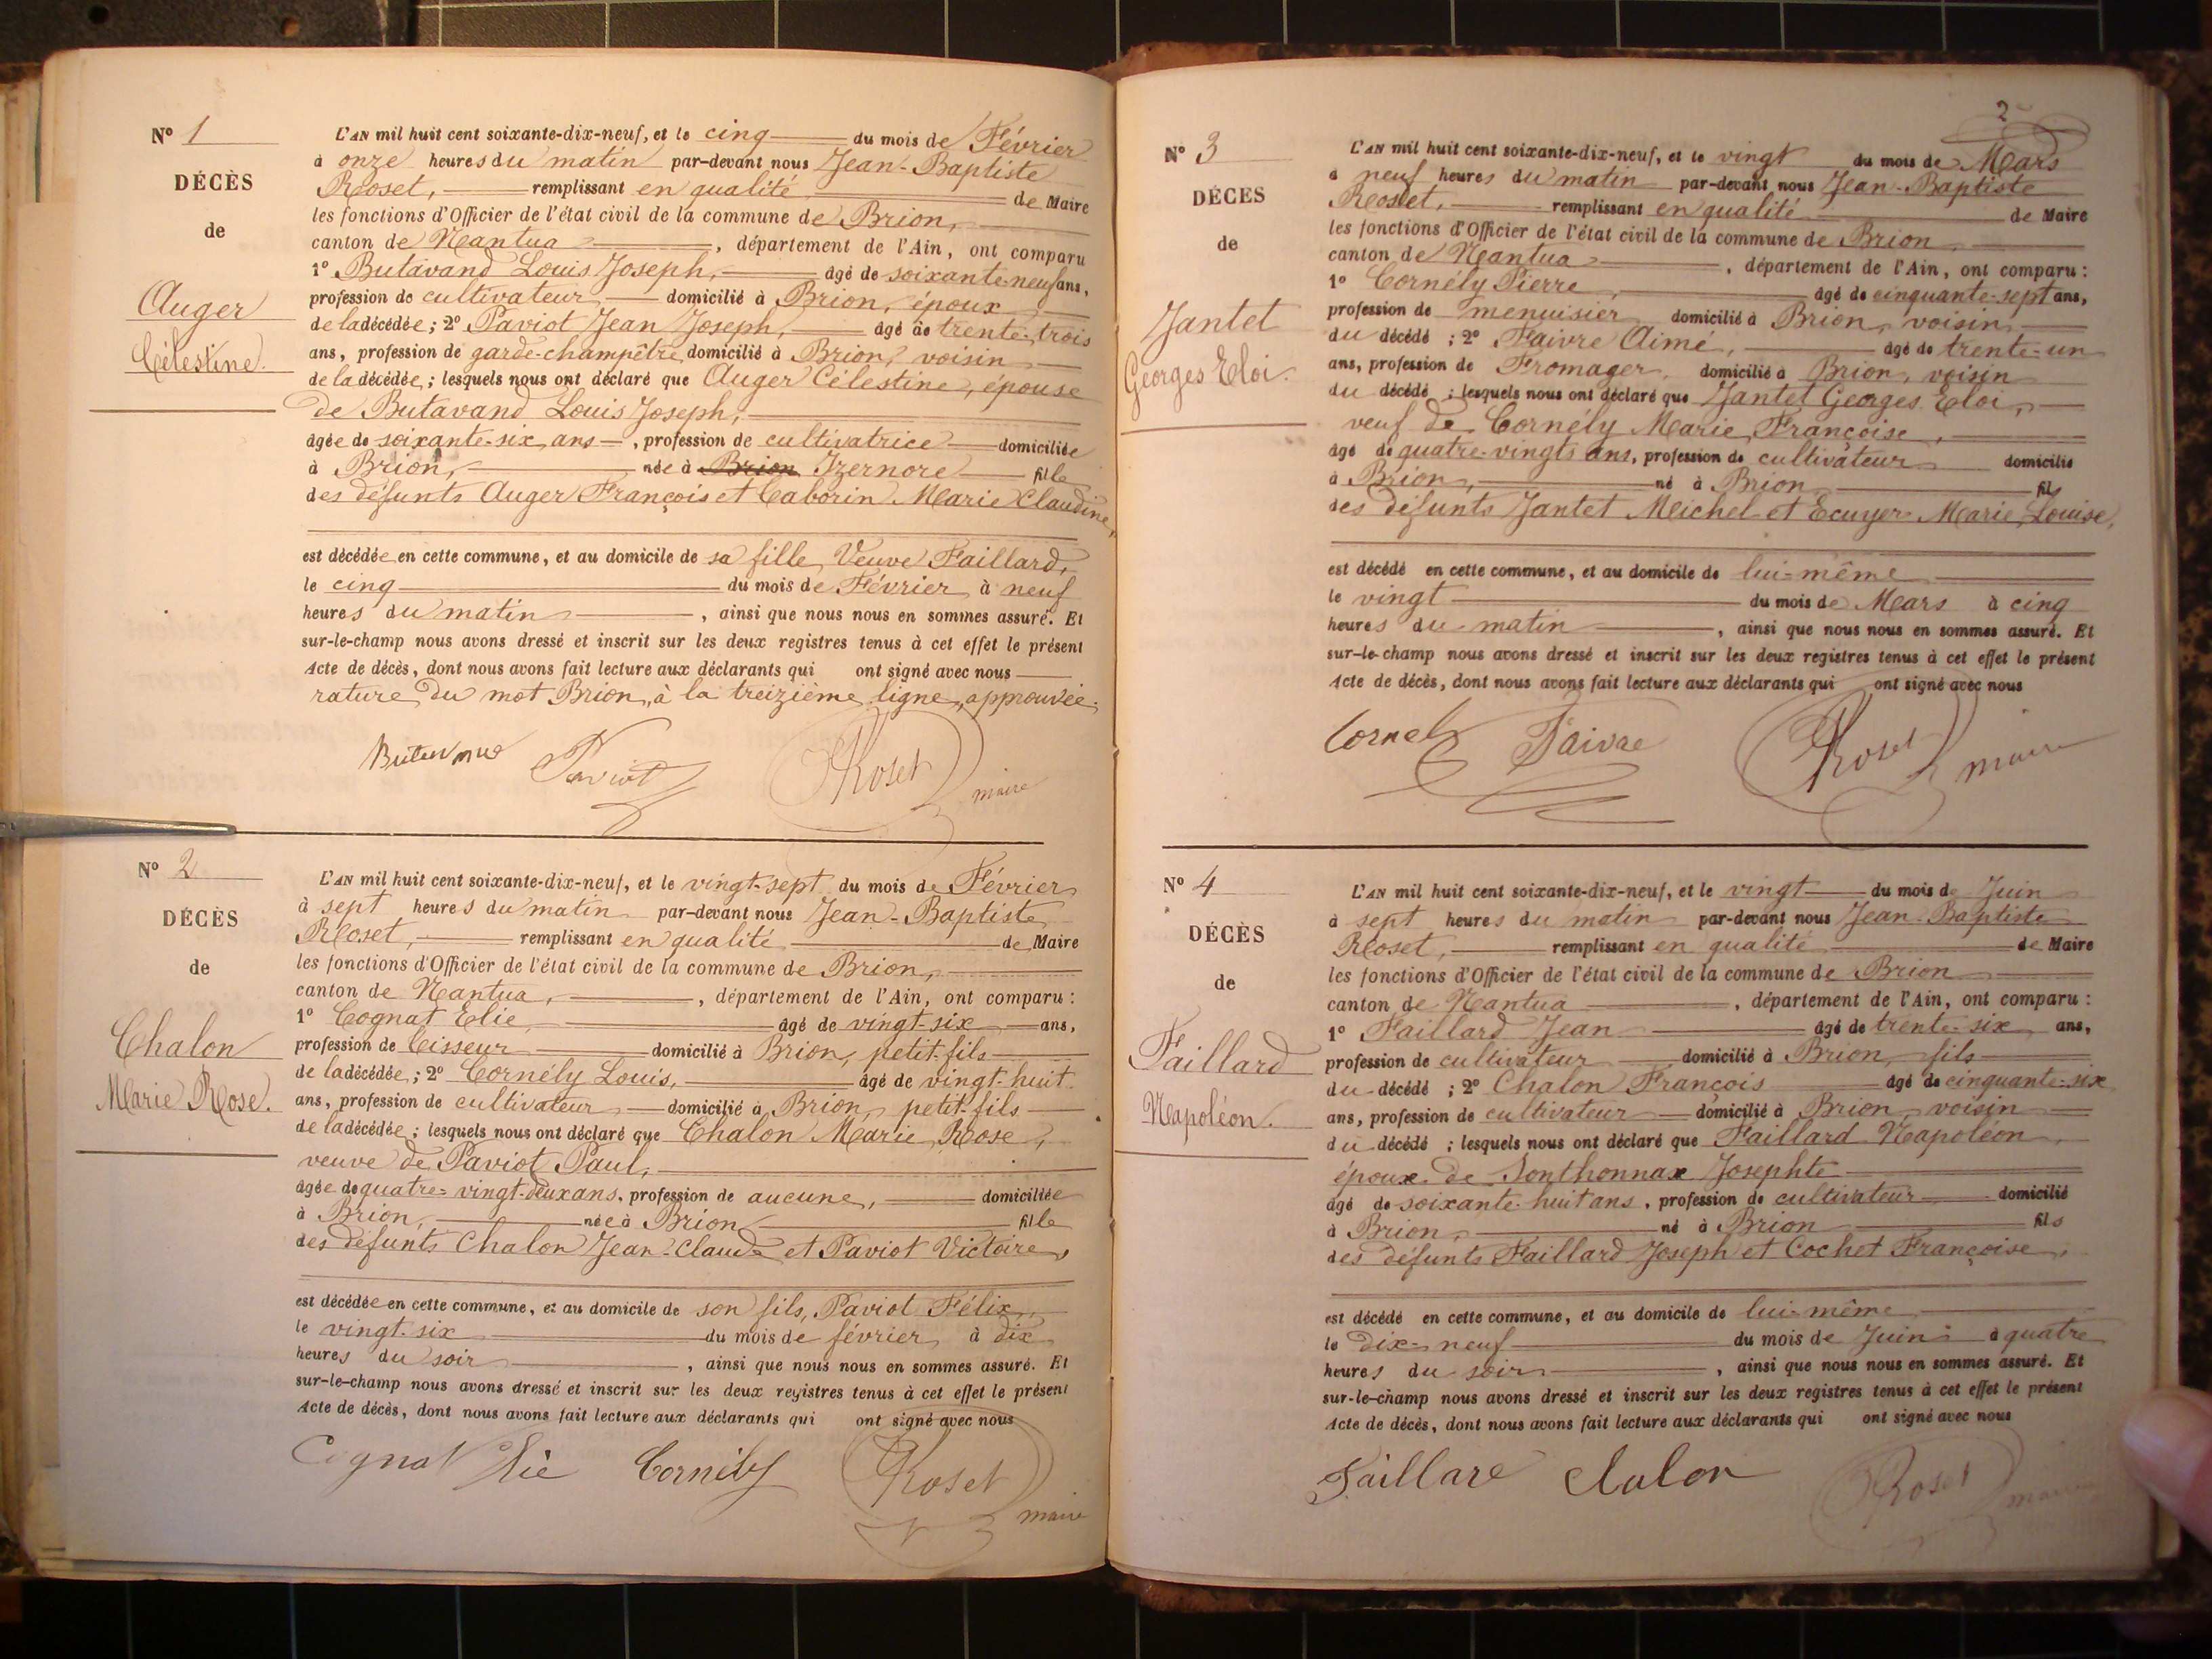 N° 1
DÉCÈS
de
Auger
Célestine.
L'AN mil huit cent soixante-dix-neuf, et le cinq du mois de Février
à onze heures du matin par-devant nous Jean-Baptiste
Roset, remplissant en qualité de Maire
les fonctions d'Officier de l'état civil de la commune de Brion,
canton de Nantua, département de l'Ain, ont comparu
1° Butavand Louis Joseph, âgé de soixante-neuf ans,
profession de cultivateur domicilié à Brion, époux
de la décédée; 2° Paviot Jean Joseph, âgé de trente-trois
ans, profession de garde-champêtre, domicilié à Brion, voisin
de la décédée; lesquels nous ont déclaré que Auger Célestine, épouse
de Butavand Louis Joseph,
âgée de soixante-six ans, profession de cultivatrice domiciliée
à Brion, née à Brion Izernore fille
des défunts Auger François et Caborin Marie Claudine,
est décédée en cette commune, et au domicile de sa fille, Veuve Faillard,
le cinq du mois de Février à neuf
heures du matin, ainsi que nous nous en sommes assuré. Et
sur-le-champ nous avons dressé et inscrit sur les deux registres tenus à cet effet le présent
Acte de décès, dont nous avons fait lecture aux déclarants qui ont signé avec nous
rature du mot Brion, à la treizième ligne, approuvée.
Butavand Paviot Roset maire
N° 2
DÉCÈS
de
Chalon
Marie Rose.
L'AN mil huit cent soixante-dix-neuf, et le vingt-sept du mois de Février
à sept heures du matin par-devant nous Jean-Baptiste
Roset, remplissant en qualité de Maire
les fonctions d'Officier de l'état civil de la commune de Brion,
canton de Nantua, département de l'Ain, ont comparu :
1° Cognat Elie, âgé de vingt-six ans,
profession de Tisseur domicilié à Brion, petit-fils
de la décédée; 2° Cornély Louis, âgé de vingt-huit
ans, profession de cultivateur domicilié à Brion, petit-fils
de la décédée; lesquels nous ont déclaré que Chalon Marie Rose,
veuve de Paviot Paul,
âgée de quatre-vingt-deux ans, profession de aucune, domiciliée
à Brion, née à Brion fille
des défunts Chalon Jean-Claude et Paviot Victoire,
est décédée en cette commune, et au domicile de son fils, Paviot Félix,
le vingt-six du mois de février à dix
heures du soir, ainsi que nous nous en sommes assuré. Et
sur-le-champ nous avons dressé et inscrit sur les deux registres tenus à cet effet le présent
Acte de décès, dont nous avons fait lecture aux déclarants qui ont signé avec nous
Cognat Elie Cornély Roset maire
2
N° 3
DÉCÈS
de
Jantet
Georges Eloi.
L'AN mil huit cent soixante-dix-neuf, et le vingt du mois de Mars
à neuf heures du matin par-devant nous Jean-Baptiste
Roset, remplissant en qualité de Maire
les fonctions d'Officier de l'état civil de la commune de Brion,
canton de Nantua, département de l'Ain, ont comparu :
1° Cornély Pierre, âgé de cinquante-sept ans,
profession de menuisier domicilié à Brion, voisin
du décédé ; 2° Faivre Aimé, âgé de trente-un
ans, profession de Fromager, domicilié à Brion, voisin
du décédé ; lesquels nous ont déclaré que Jantet Georges Eloi,
veuf de Cornély Marie Françoise,
âgé de quatre-vingts ans, profession de cultivateur domicilié
à Brion, né à Brion fils
des défunts Jantet Michel et Ecuyer Marie Louise,
est décédé en cette commune, et au domicile de lui-même
le vingt du mois de Mars à cinq
heures du matin, ainsi que nous nous en sommes assuré. Et
sur-le-champ nous avons dressé et inscrit sur les deux registres tenus à cet effet le présent
Acte de décès, dont nous avons fait lecture aux déclarants qui ont signé avec nous
Cornely Faivre Roset maire
N° 4
DÉCÈS
de
Faillard
Napoléon.
L'AN mil huit cent soixante-dix-neuf, et le vingt du mois de Juin
à sept heures du matin par-devant nous Jean-Baptiste
Roset, remplissant en qualité de Maire
les fonctions d'Officier de l'état civil de la commune de Brion
canton de Nantua, département de l'Ain, ont comparu :
1° Faillard Jean âgé de trente-six ans,
profession de cultivateur domicilié à Brion, fils
du décédé ; 2° Chalon François âgé de cinquante-six
ans, profession de cultivateur domicilié à Brion, voisin
du décédé ; lesquels nous ont déclaré que Faillard Napoléon,
époux de Sonthonnax Josephte
âgé de soixante-huit ans, profession de cultivateur domicilié
à Brion, né à Brion fils
des défunts Faillard Joseph et Cochet Françoise,
est décédé en cette commune, et au domicile de lui-même
le dix-neuf du mois de Juin à quatre
heures du soir, ainsi que nous nous en sommes assuré. Et
sur-le-champ nous avons dressé et inscrit sur les deux registres tenus à cet effet le présent
Acte de décès, dont nous avons fait lecture aux déclarants qui ont signé avec nous
Faillard Chalon Roset maire